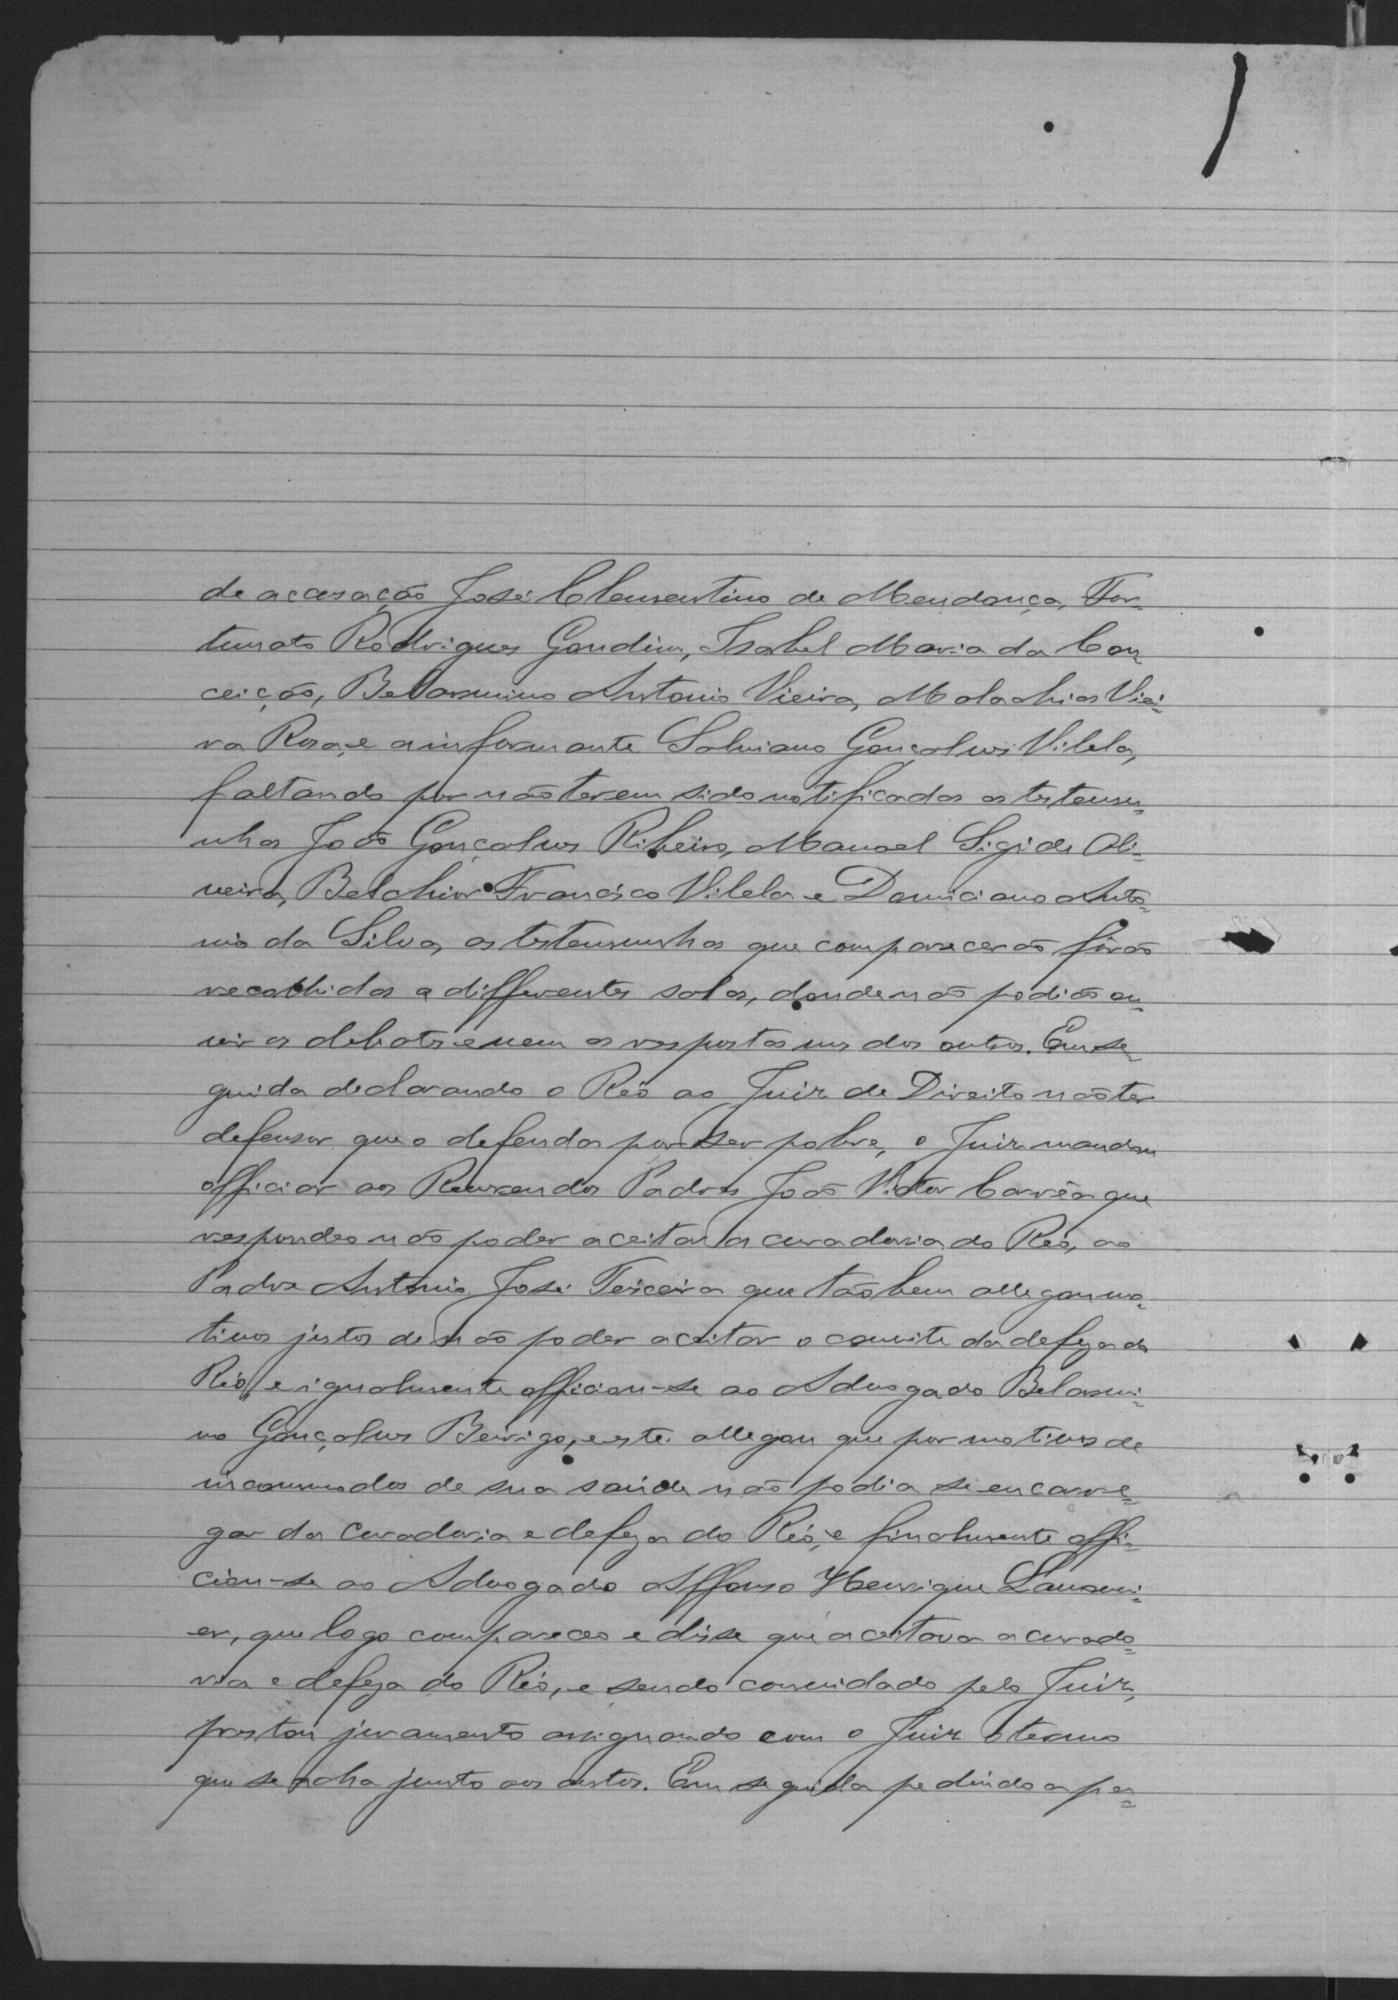 de accusação José Clementino de Mendonça, For-
tunato Rodrigues Gondim, Isabel Maria da Con-
ceição, Belarmino Antonio Vieira, Malachias Viei-
ra Rosa, e a informante Salviano Gonçalves Vilela,
faltando por não terem sido notificados as testemu-
nhas João Gonçalves Ribeiro, Manoel Sigi de Oli-
veira, Belchior Francisco Vilela e Domiciano Anto-
nio da Silva, as testemunhas que comparecerão fôrão
recolhidas a differentes salas, donde não podião ou-
vir os debates e nem as respostas uns dos outros. Em se-
guida declarando o Réo ao Juiz de Direito não ter
defensor que o defenda por ser pobre, o Juiz mandou
officiar aos Reverendos Padres João Victor Corrêa que
respondeo não poder aceitar a curadoria do Réo, ao
Padre Antonio José Teixeira que tãobem allegou mo-
tivos justos de não poder aceitar o convite da defeza do
Réo, e igualmente officiou-se ao Advogado Belarmi-
no Gonçalves Berrigo, e este allegou que por motivos de
incommodos de sua saúde não podia se encarre-
gar da curadoria e defeza do Réo, e finalmente offi-
ciou-se ao Advogado Affonso Henrique
er, que logo compareceo e disse que aceitava a curado-
ria e defeza do Réo, e sendo convidado pelo Juiz,
prestou juramento assignando com o Juiz o termo
que se acha junto aos autos. Em seguida pedindo a pa-